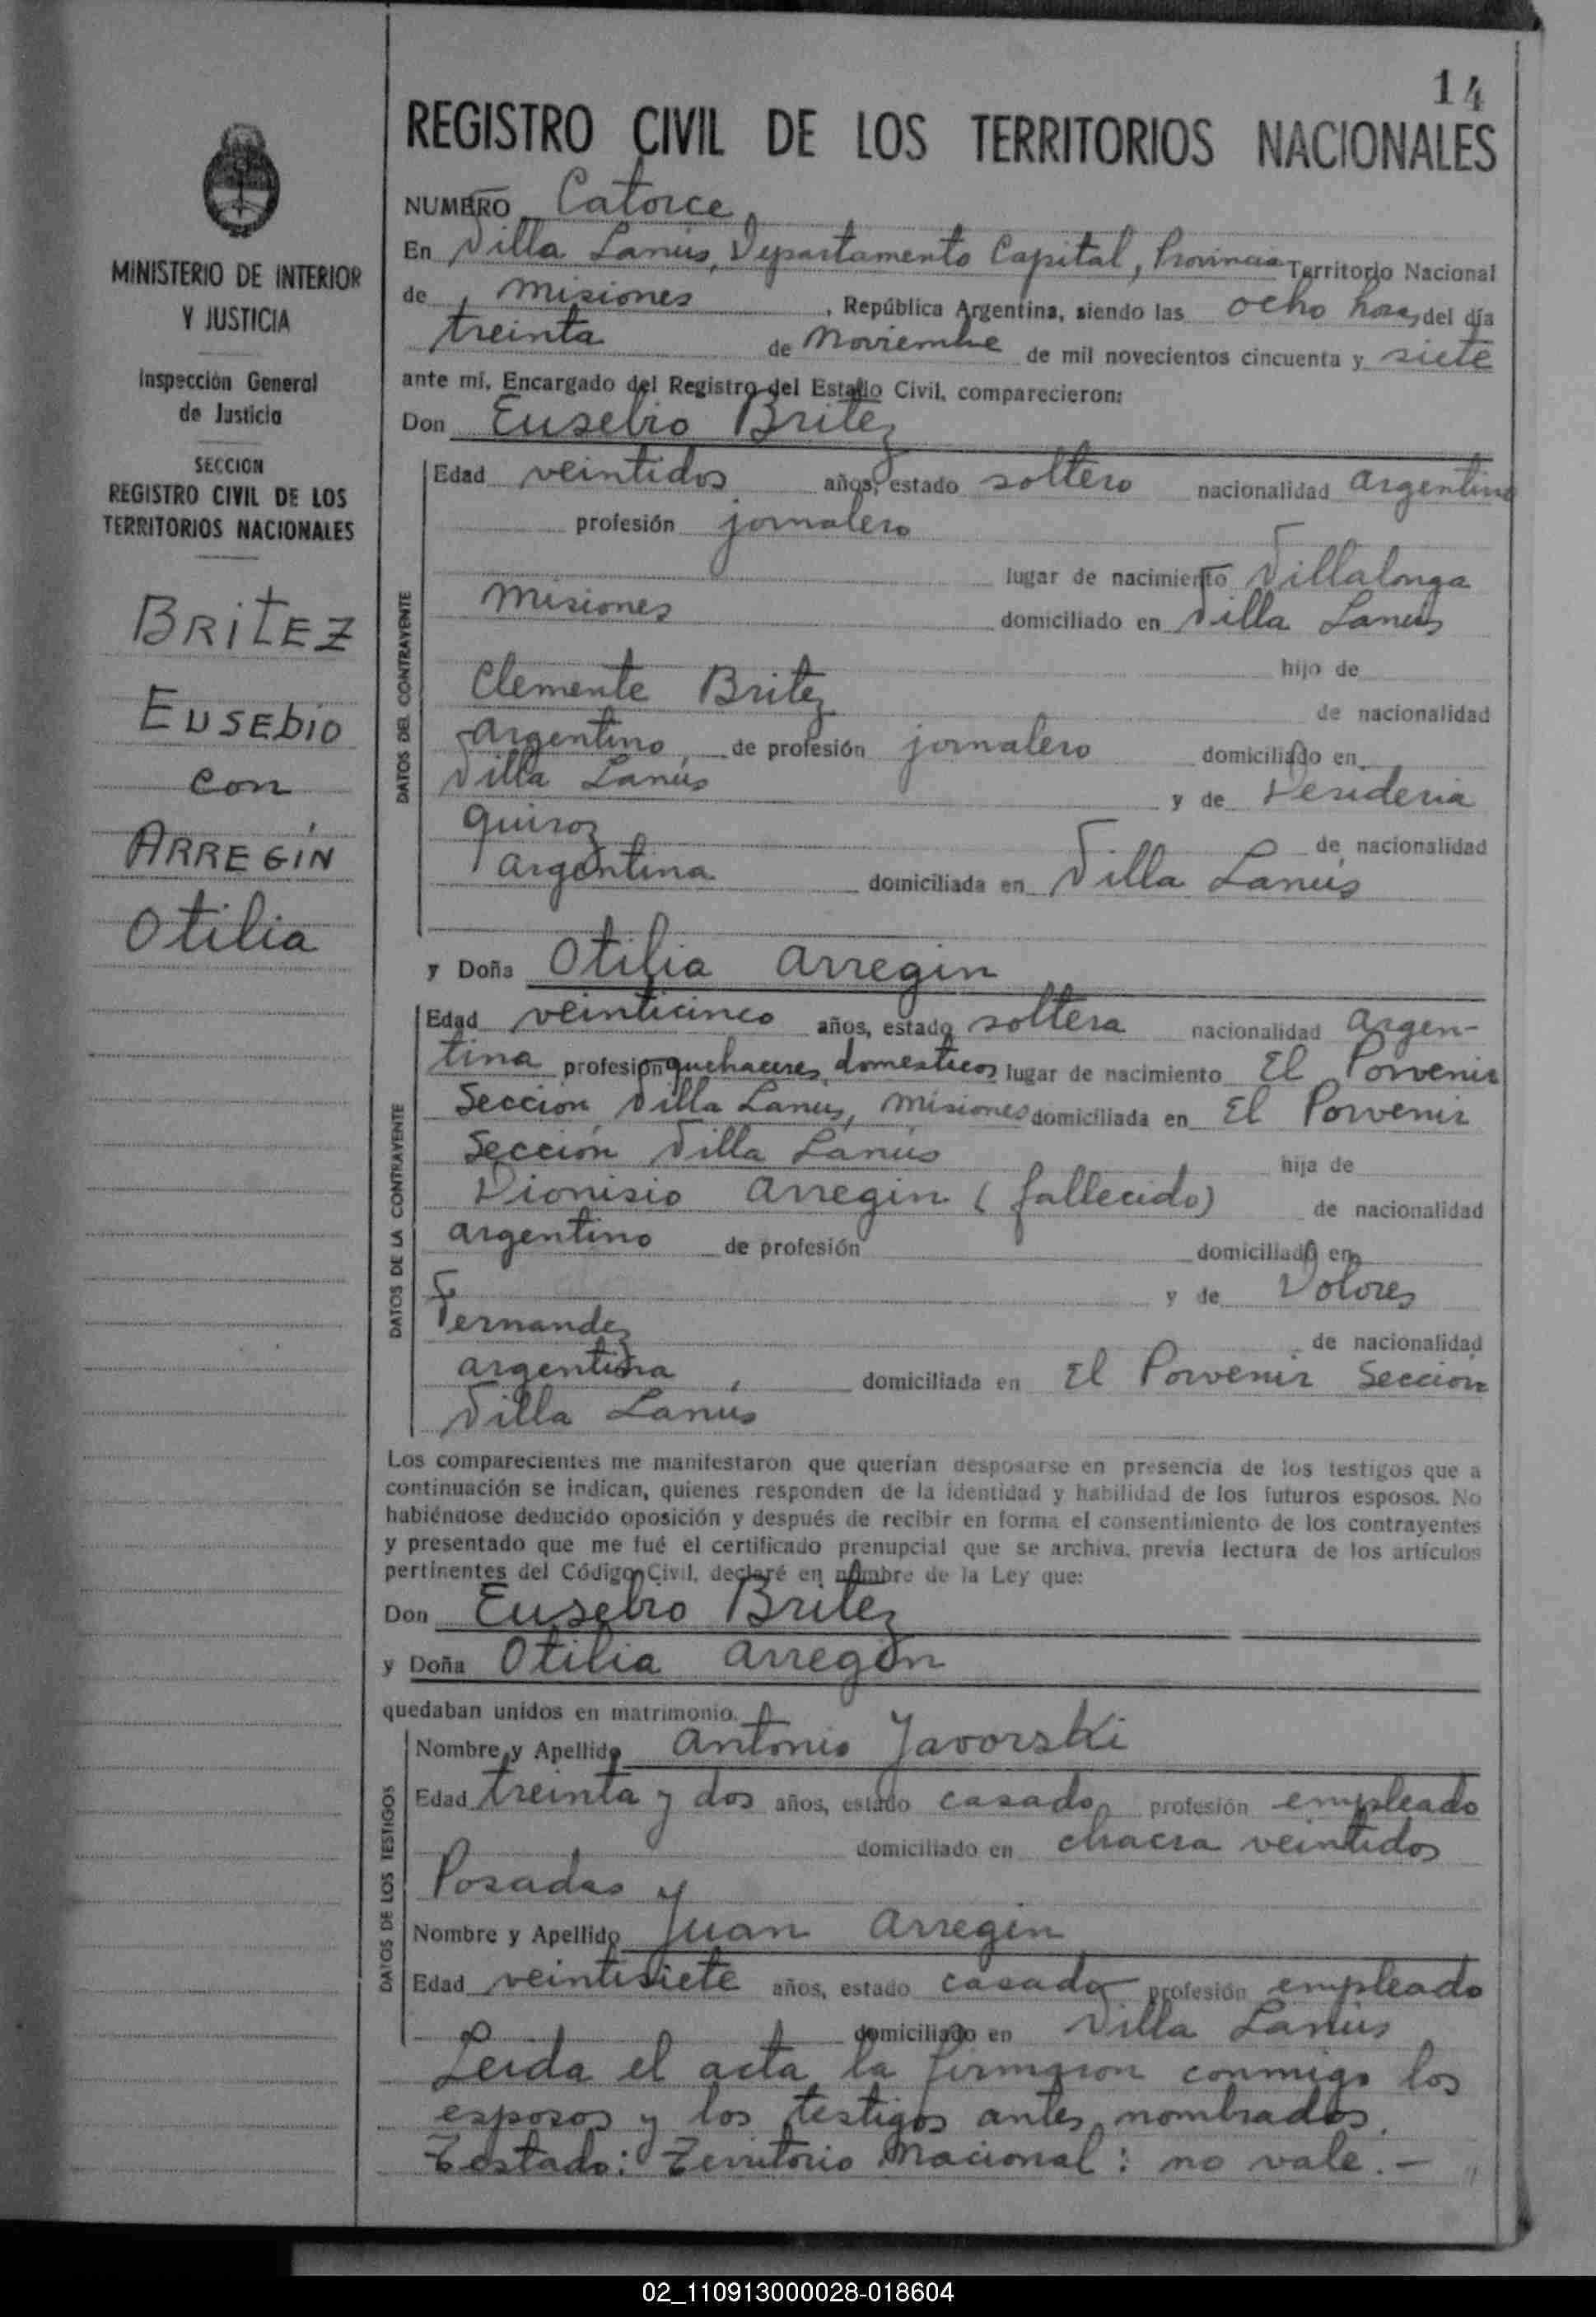 14
REGISTRO CIVIL DE LOS TERRITORIOS NACIONALES
MINISTERIO DE INTERIOR
Y JUSTICIA
Inspección General
de Justicia
SECCION
REGISTRO CIVIL DE LOS
TERRITORIOS NACIONALES
BRITEZ
EUSEBIO
con
ARREGÍN
Otilia
NUMERO Catorce
En Villa Lanús, Departamento Capital, Provincia Territorio Nacional
de Misiones, República Argentina, siendo las ocho horas del día
treinta de Noviembre de mil novecientos cincuenta y siete
ante mí, Encargado del Registro del Estado Civil, comparecieron:
Don Eusebio Britez
DATOS DEL CONTRAYENTE
Edad veintidos años, estado soltero nacionalidad argentino
profesión jornalero
lugar de nacimiento Villalonga
Misiones domiciliado en Villa Lanús
hijo de
Clemente Britez de nacionalidad
argentino de profesión jornalero domiciliado en
Villa Lanús y de Desideria
Quiroz de nacionalidad
argentina domiciliada en Villa Lanús
y Doña Otilia Arregin
DATOS DE LA CONTRAYENTE
Edad veinticinco años, estado soltera nacionalidad argen-
tina profesión quehaceres domesticos lugar de nacimiento El Porvenir
Sección Villa Lanús, Misiones domiciliada en El Porvenir
Sección Villa Lanús hija de
Dionisio Arregin (fallecido) de nacionalidad
argentino de profesión domiciliado en
y de Dolores
Fernandez de nacionalidad
argentina, domiciliada en El Porvenir Sección
Villa Lanús
Los comparecientes me manifestaron que querían desposarse en presencia de los testigos que a
continuación se indican, quienes responden de la identidad y habilidad de los futuros esposos. No
habiéndose deducido oposición y después de recibir en forma el consentimiento de los contrayentes
y presentado que me fué el certificado prenupcial que se archiva, previa lectura de los artículos
pertinentes del Código Civil, declaré en nombre de la Ley que:
Don Eusebio Britez
y Doña Otilia Arregin
quedaban unidos en matrimonio.
DATOS DE LOS TESTIGOS
Nombre y Apellido Antonio Javorski
Edad treinta y dos años, estado casado profesión empleado
domiciliado en chacra veintidos
Posadas y
Nombre y Apellido Juan Arregin
Edad veintisiete años, estado casado profesión empleado
domiciliado en Villa Lanús
Leida el acta la firmaron conmigo los
esposos y los testigos antes nombrados.
Testado: Territorio Nacional: no vale.-
02_110913000028-018604